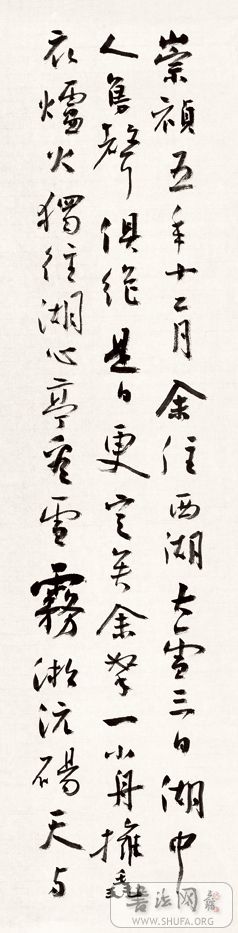 崇禎五年十二月余住西湖大雪三日湖中
人鳥聲俱絕是日更定矣余拏一小舟擁毳
衣爐火獨往湖心亭看雪霧淞沆碭天与
書法网
WWW.SHUFA.ORG